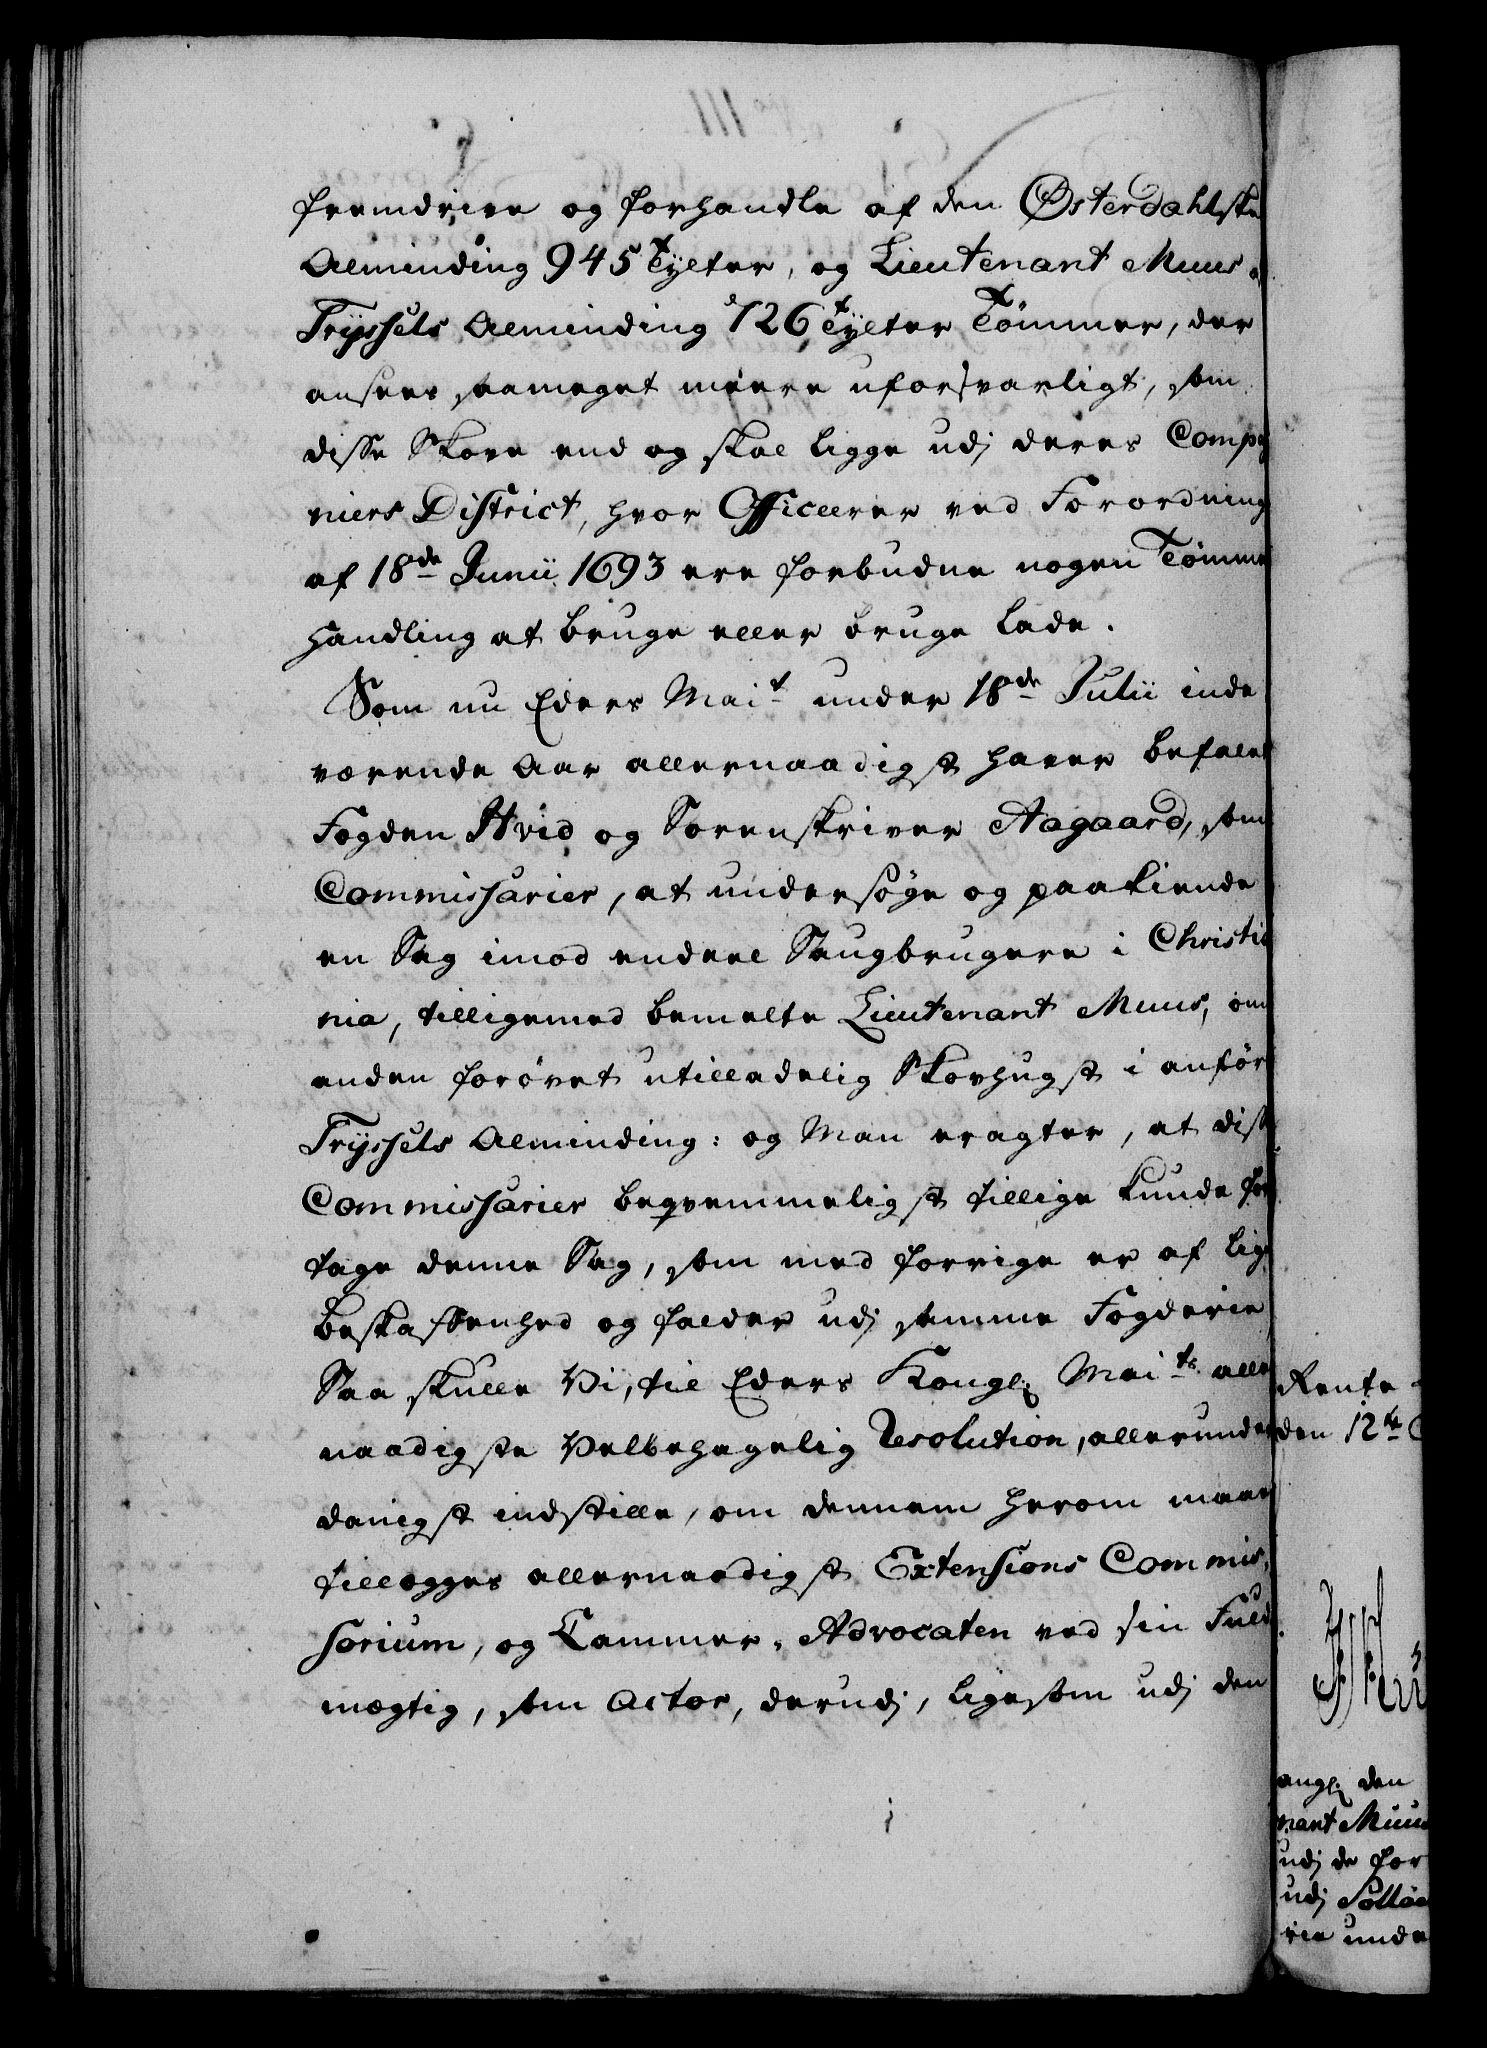 fremdrive og forhandle af den Østerdahlske
Alminding 945 Tylter, og Lieutenant Muus a
Tryssels Alminding 726 Tylter Tømmer, der
ansees saameget meere uforsvarligt, som
disse Skove end og skal ligge udj deres Compag
niers District, hvor Officerer ved Forordning
af 18de Junii 1693 ere forbudne nogen Tømme
Handling at bruge eller bruge lade.
Som nu Eders Mait under 18de Julii inde
værende Aar allernaadigst haver befalet
Fogden Hvid og Sorenskriver Aagaard, som
Commissarier, at undersøge og paakiende
en Sag imod endeel Saugbrugere i Christia
nia, tilligemed bemelte Lieutenant Muus, om
anden forøvet utilladelig Skovhugst i anfør
Tryssels Alminding: og Man eragter, at disse
Commissarier beqvemmeligst tillige kunde for
tage denne Sag, som med forrige er af lig
Beskaffenhed og falder udj samme Fogderie
Saa skulle Vi, til Eders Kongl. Maits aller
naadigste Velbehagelig Resolution, allerunder
danigst indstille, om dennem herom maae
tillegges allernaadigst Extensions Commis-
sorium, og Cammer-Advocaten ved sin Fuld
mægtig, som Actor, derudj, ligesom udj den
Rente-
den 12te
angl. den
nant Muus
udj de for
udj Solløe
rie unde